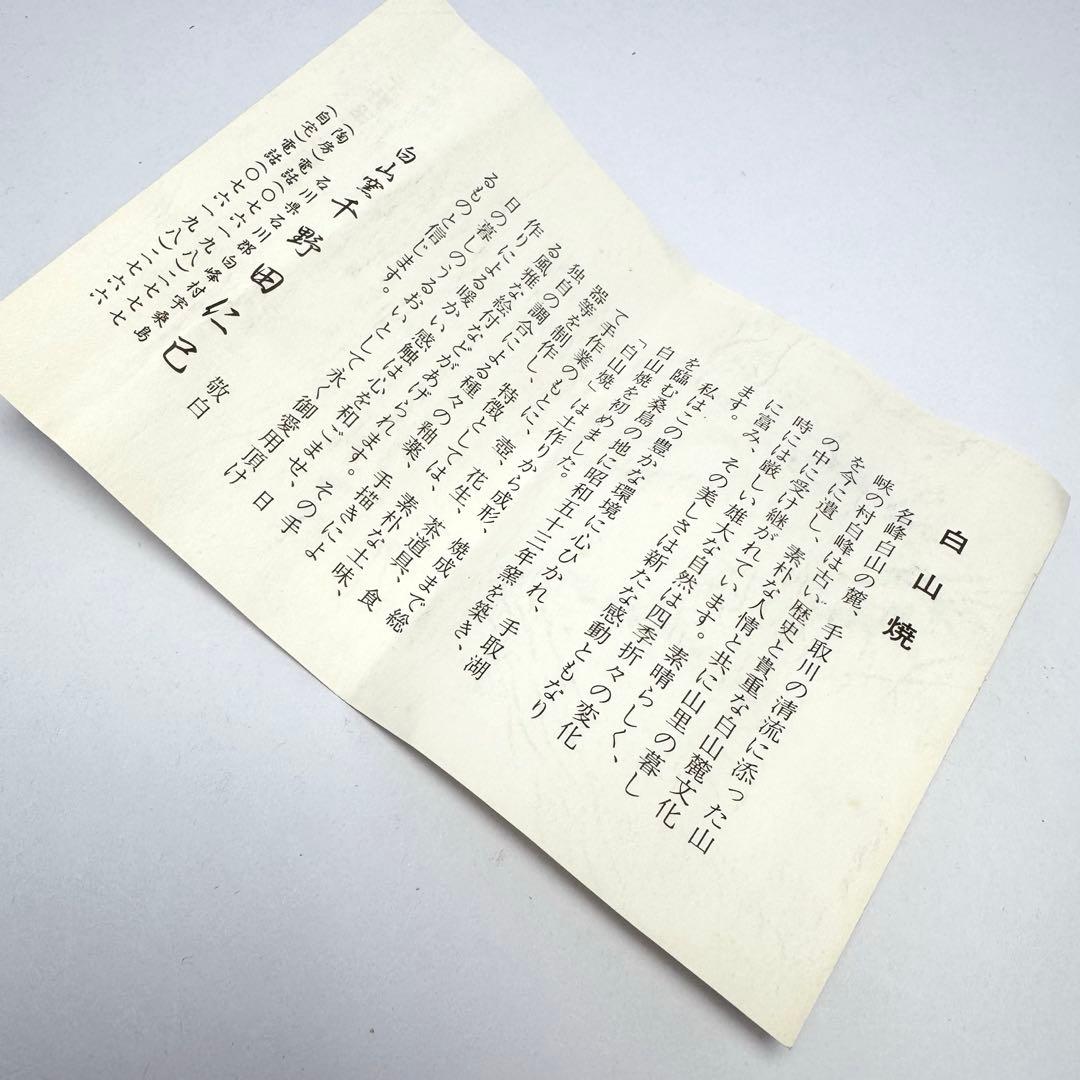 白山焼
名峰白山の麓、手取川の清流に添った山
峡の村白峰は古い歴史と貴重な白山麓文化
を今に遺し、素朴な人情と共に山里の暮し
の中に受け継がれています。素晴らしく、
時には厳しい雄大な自然は四季折々の変化
に富み、その美しさは新たな感動ともなり
ます。
私はこの豊かな環境に心ひかれ、手取湖
を臨む桑島の地に昭和五十三年窯を築き、
白山焼を初めました。
「白山焼」は土作りから成形、焼成まで総
て手作業のもとに、壺、花生、茶道具、食
器等を制作し、特徴としては、素朴な土味、
独自の調合による種々の釉薬、手描きによ
る風雅な絵付などがあげられます。手
作りによる暖かい感触は心を和ごませ、その日
日の暮しのうるおいとして永く御愛用頂け
るものと信じます。
敬白
白山窯 千野田仁己
(陶房)石川県石川郡白峰村字桑島
電話(〇七六一九八)二一七七七
(自宅)電話(〇七六一九八)二一七六六